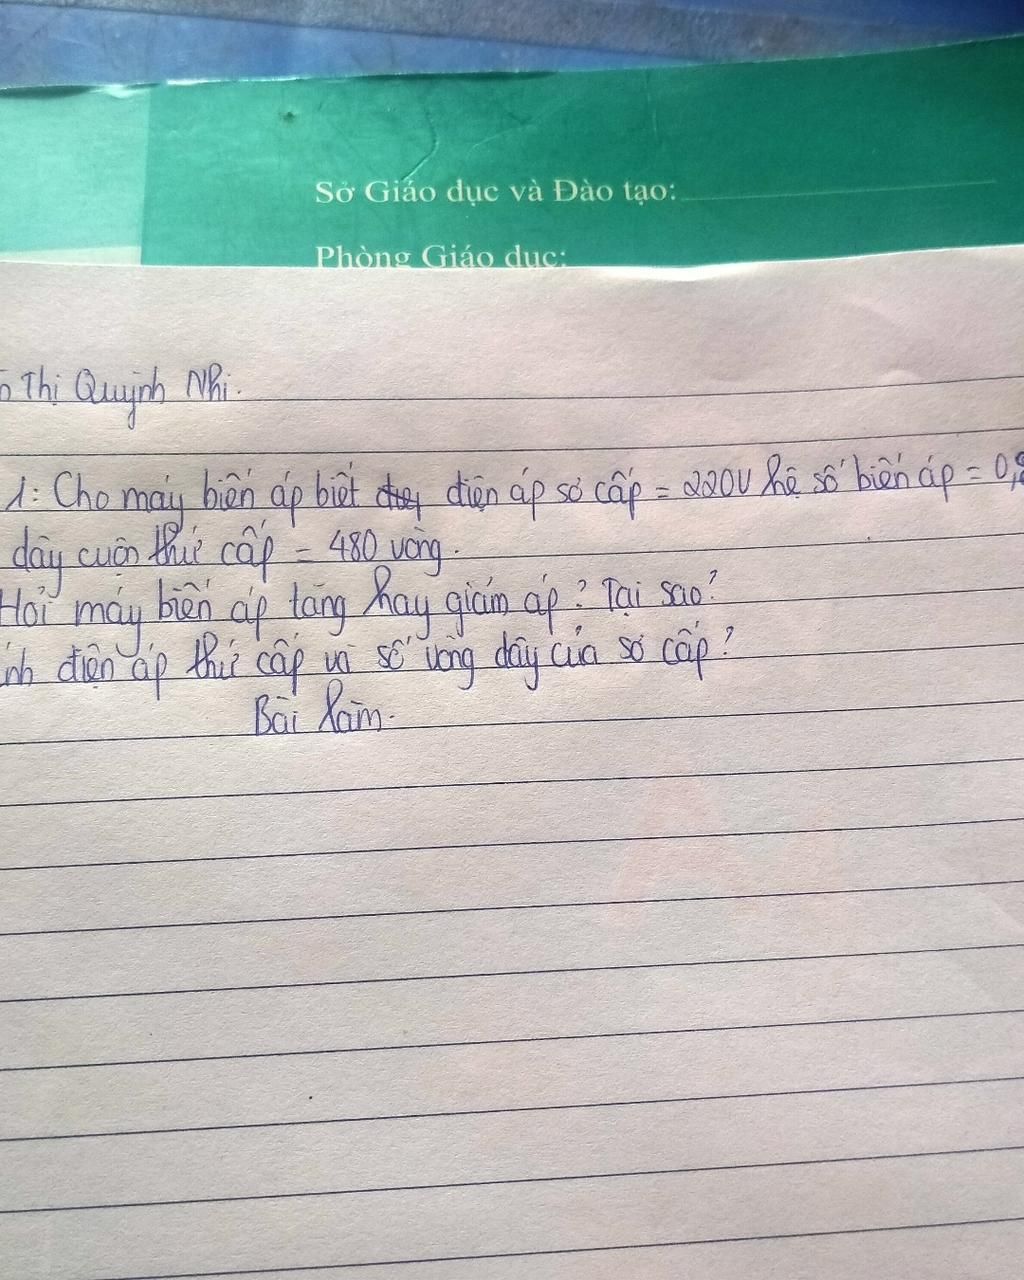 Sở Giáo dục và Đào tạo:
Phòng Giáo dục:
Thị Quỳnh Nhi.
1: Cho máy biến áp biết điện áp sơ cấp = 220V hệ số biến áp = 0,
dây cuộn thứ cấp = 480 vòng.
Hỏi máy biến áp tăng hay giảm áp? Tại sao?
điện áp thứ cấp và số vòng dây của sơ cấp?
Bài làm.